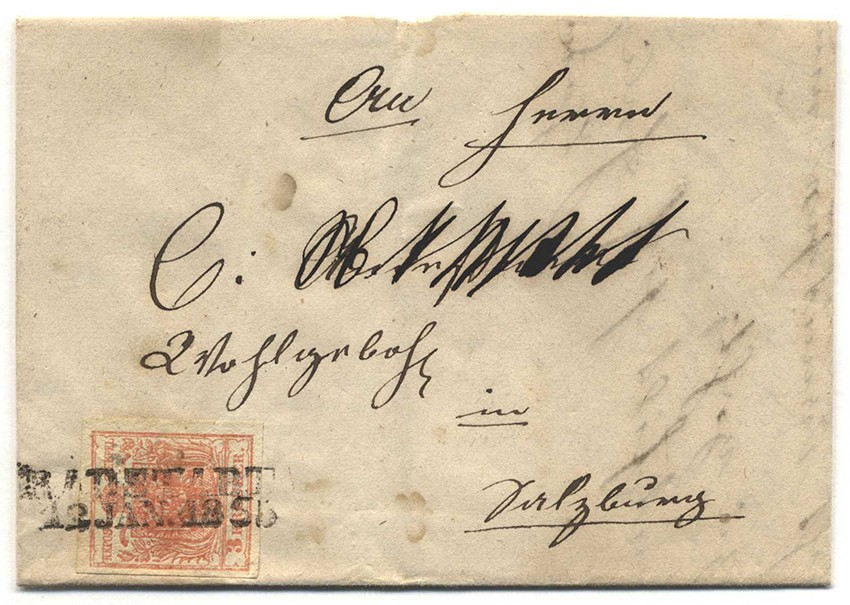 An Herrn
C:
Wohlgeboh
in
Salzburg
RADSTADT
12 JAN. 1855
3 KREUZER